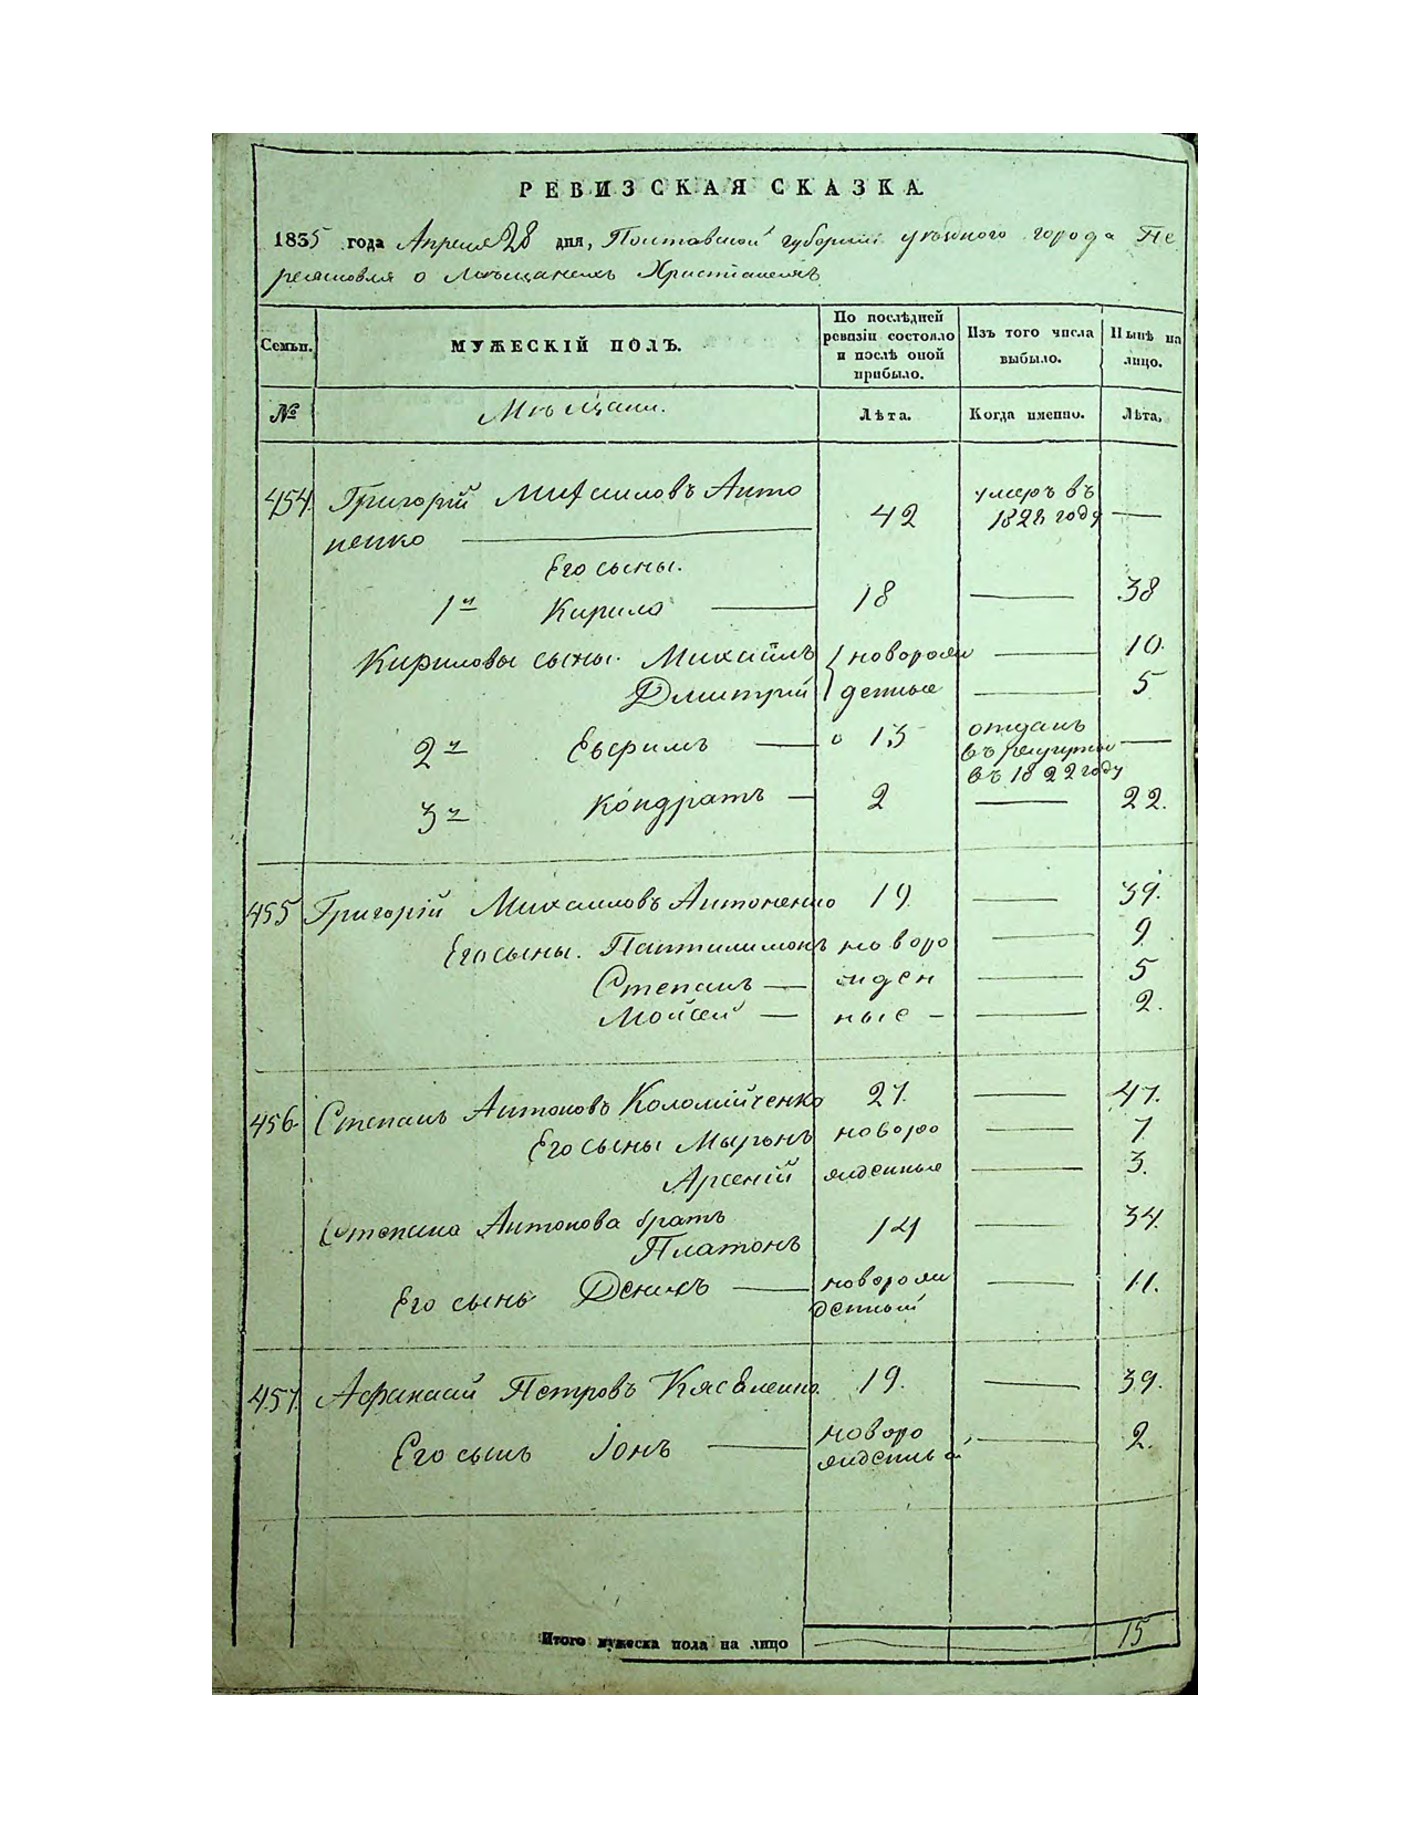 РЕВИЗСКАЯ СКАЗКА
1835 года Апреля 28 дня, Полтавской губерніи уѣзднаго города Пе
реяславля о Мѣщанехъ Христіанехъ
Семьи. МУЖЕСКІЙ ПОЛЪ. По послѣдней ревизіи состояло и послѣ оной прибыло. Изъ того числа выбыло. Нынѣ на лицо.
№ Мѣщани. Лѣта. Когда именно. Лѣта.
454. Григорій Михаиловъ Анто 42 умеръ въ 1828 году —
ненко —
Его сыны.
1й Кирило — 18 — 38
Кириловы сыны. Михаилъ новорож — 10.
Дмитрій денные — 5
2й Евфимъ — 15 отданъ въ рекруты въ 1822 году —
3й Кондратъ — 2 — 22.
455 Григорій Михаиловъ Антоненко 19. — 39.
Его сыны. Пантилимонъ новоро — 9
Степанъ — жден — 5
Мойсей — ные — — 2.
456. Степанъ Антоновъ Коломійченко 27. — 47.
Его сыны Миронъ новоро — 7
Арсеній жденные — 3.
Степана Антонова братъ
Платонъ 14 — 34.
Его сынъ Денисъ — новорож — 11.
денный
457. Афанасій Петровъ 19. — 39.
Его сынъ Іонъ — новоро — 2.
жденный
Итого мужеска пола на лицо — 15